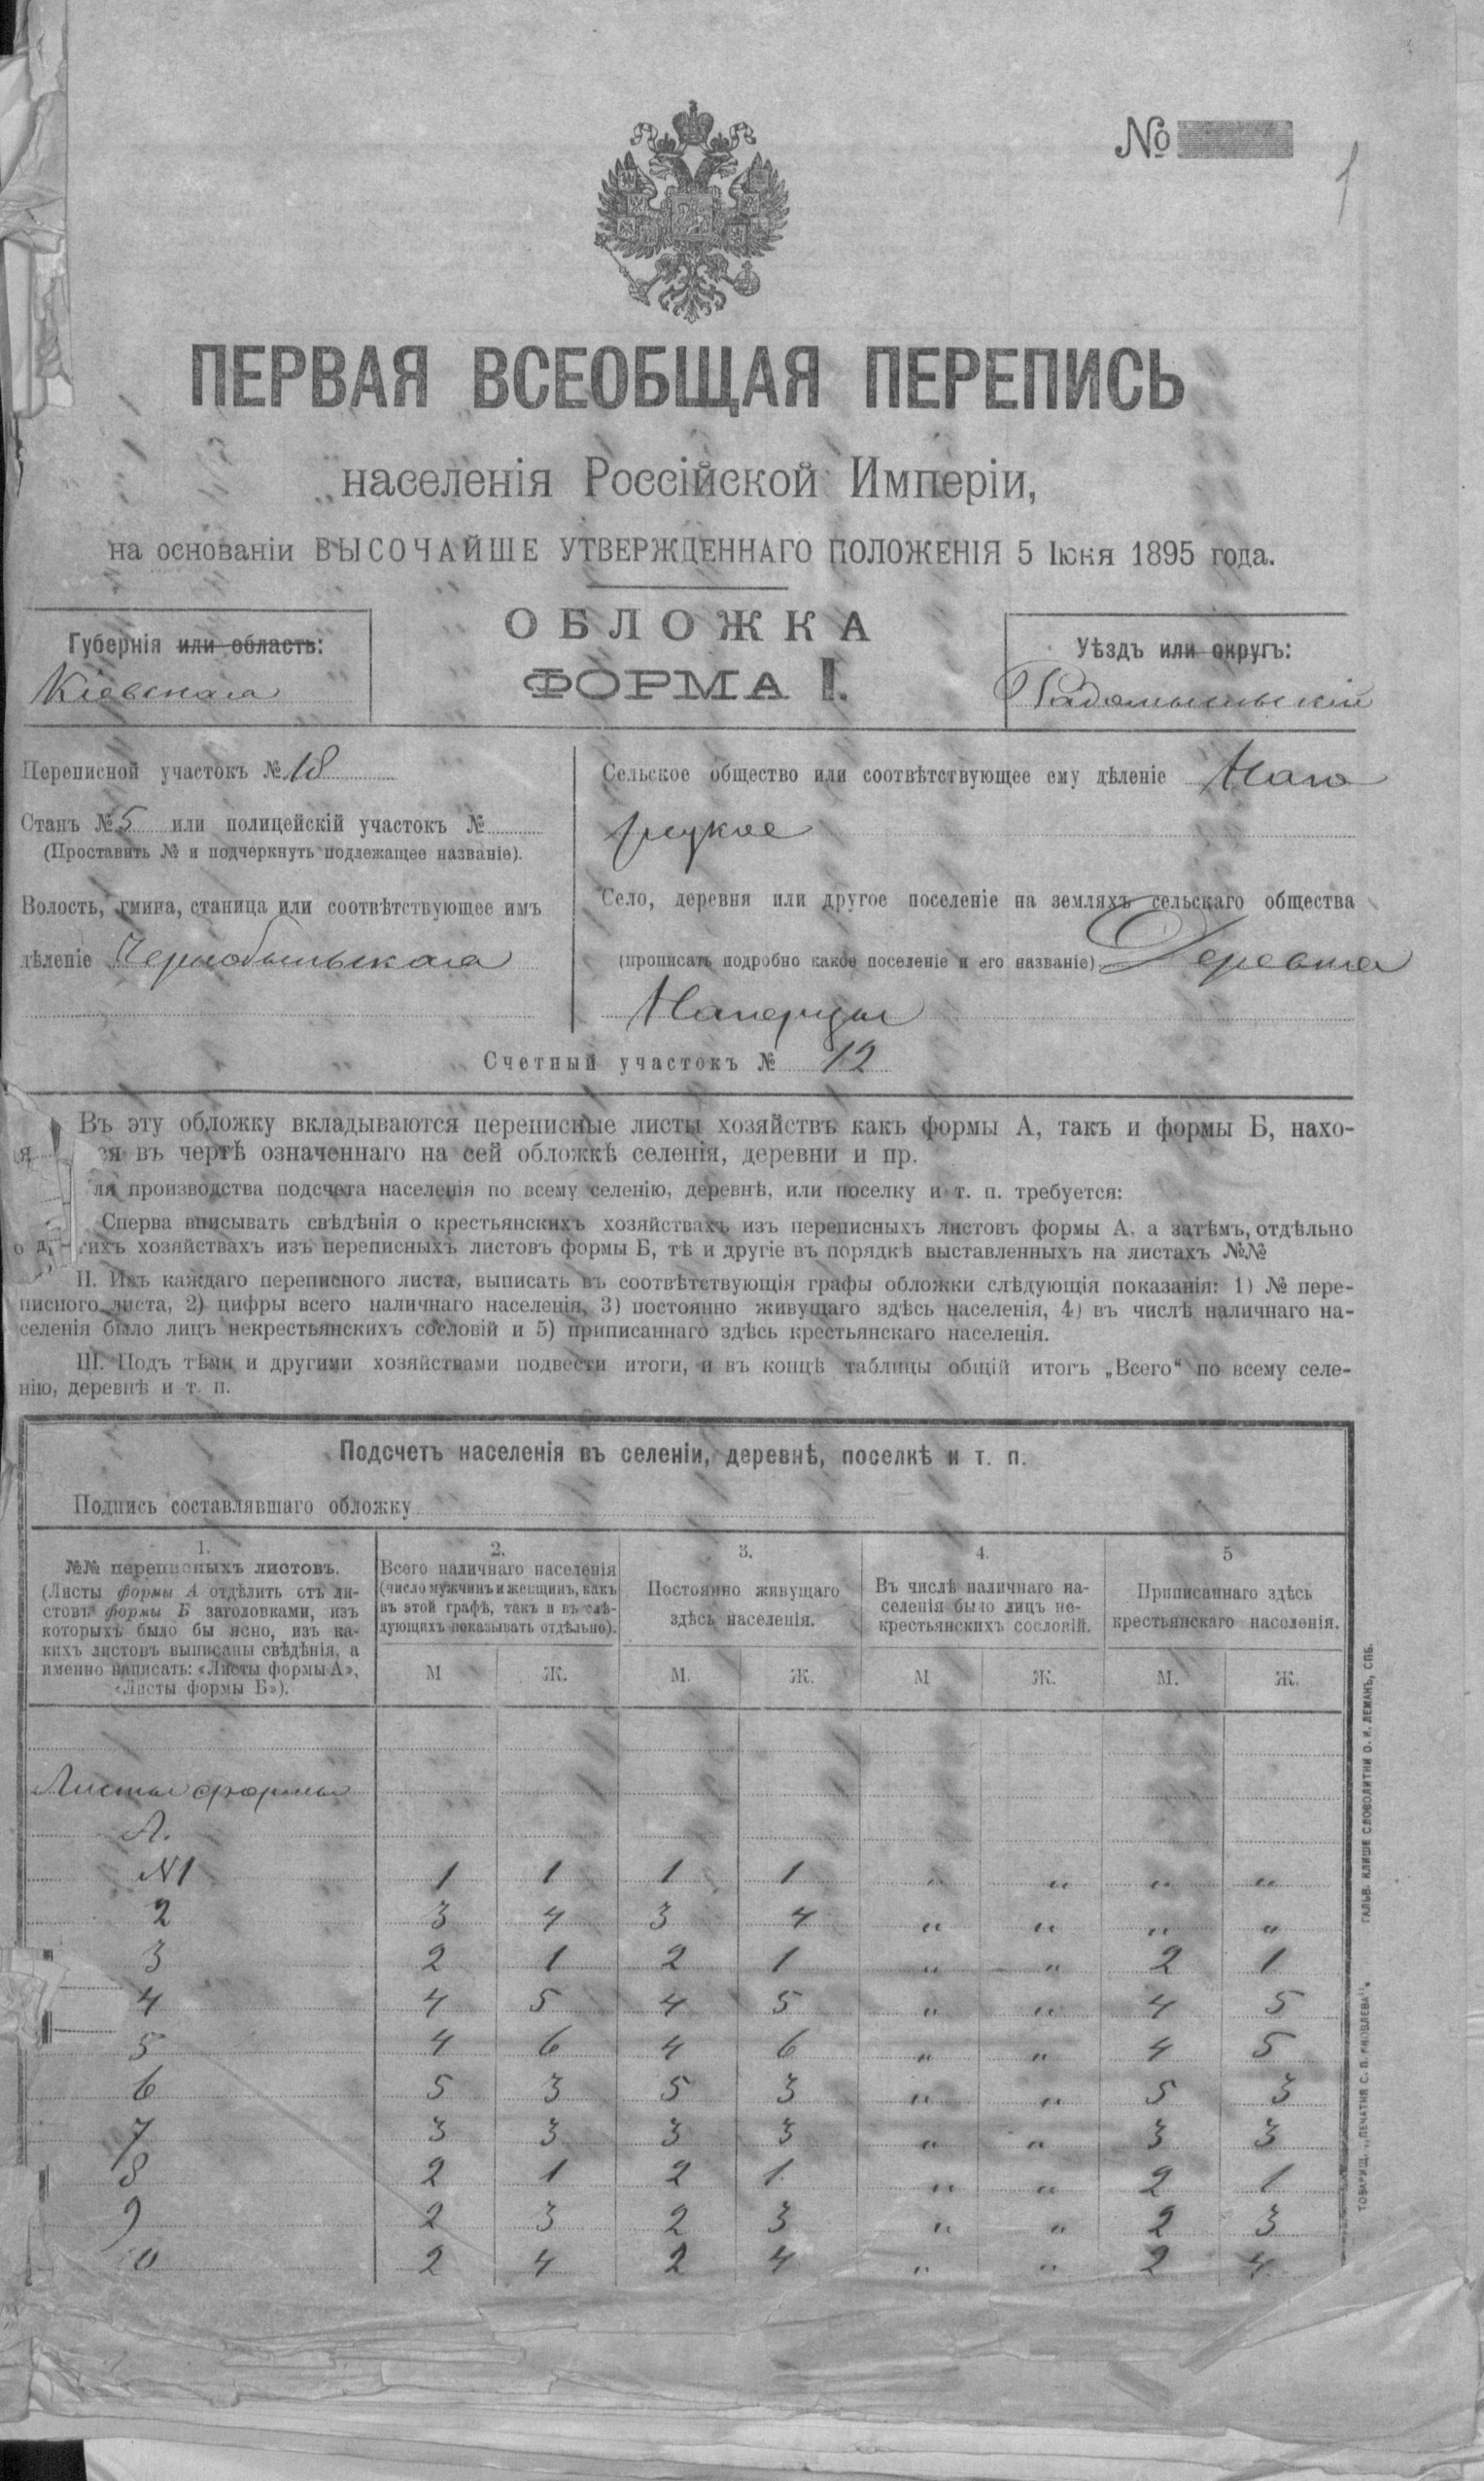 №
1
ПЕРВАЯ ВСЕОБЩАЯ ПЕРЕПИСЬ
населенія Россійской Имперіи,
на основаніи ВЫСОЧАЙШЕ УТВЕРЖДЕННАГО ПОЛОЖЕНІЯ 5 Іюня 1895 года.
ОБЛОЖКА
ФОРМА I.
Губернія или область:
Кіевская
Уѣздъ или округъ:
Радомысльскій
Переписной участокъ № 18
Станъ № 5 или полицейскій участокъ №
(Проставить № и подчеркнуть подлежащее названіе).
Волость, гмина, станица или соотвѣтствующее имъ
дѣленіе Чернобыльская
Сельское общество или соотвѣтствующее ему дѣленіе
Село, деревня или другое поселеніе на земляхъ сельскаго общества
(прописать подробно какое поселеніе и его названіе) Деревня
Счетный участокъ № 12
Въ эту обложку вкладываются переписные листы хозяйствъ какъ формы А, такъ и формы Б, нахо-
ся въ чертѣ означеннаго на сей обложкѣ селенія, деревни и пр.
ля производства подсчета населенія по всему селенію, деревнѣ, или поселку и т. п. требуется:
Сперва вписывать свѣдѣнія о крестьянскихъ хозяйствахъ изъ переписныхъ листовъ формы А, а затѣмъ, отдѣльно
о д гихъ хозяйствахъ изъ переписныхъ листовъ формы Б, тѣ и другіе въ порядкѣ выставленныхъ на листахъ №№
II. Изъ каждаго переписного листа, выписать въ соотвѣтствующія графы обложки слѣдующія показанія: 1) № пере-
писного листа, 2) цифры всего наличнаго населенія, 3) постоянно живущаго здѣсь населенія, 4) въ числѣ наличнаго на-
селенія было лицъ некрестьянскихъ сословій и 5) приписаннаго здѣсь крестьянскаго населенія.
III. Подъ тѣми и другими хозяйствами подвести итоги, и въ концѣ таблицы общій итогъ „Всего“ по всему селе-
нію, деревнѣ и т. п.
Подсчетъ населенія въ селеніи, деревнѣ, поселкѣ и т. п.
Подпись составлявшаго обложку
1.
№№ переписныхъ листовъ.
(Листы формы А отдѣлить отъ ли-
стовъ формы Б заголовками, изъ
которыхъ было бы ясно, изъ ка-
кихъ листовъ выписаны свѣдѣнія, а
именно написать: «Листы формы А»,
«Листы формы Б»).
2.
Всего наличнаго населенія
(число мужчинъ и женщинъ, какъ
въ этой графѣ, такъ и въ слѣ-
дующихъ показывать отдѣльно).
3.
Постоянно живущаго
здѣсь населенія.
4.
Въ числѣ наличнаго на-
селенія было лицъ не-
крестьянскихъ сословій.
5
Приписаннаго здѣсь
крестьянскаго населенія.
М Ж. М. Ж. М Ж. М. Ж.
Листы формы
А.
№1 1 1 1 1 „ „ „ „
2 3 4 3 4 „ „ „ „
3 2 1 2 1 „ „ 2 1
4 4 5 4 5 „ „ 4 5
5 4 6 4 6 „ „ 4 5
6 5 3 5 3 „ „ 5 3
7 3 3 3 3 „ „ 3 3
8 2 1 2 1 „ „ 2 1
9 2 3 2 3 „ „ 2 3
10 2 4 2 4 „ „ 2 4
ГАЛЬВ. КЛИШЕ СЛОВОЛИТНИ О. И. ЛЕМАНЪ, СПБ.
ТОВАРИЩ. „ПЕЧАТНЯ С. П. ЯКОВЛЕВА“.